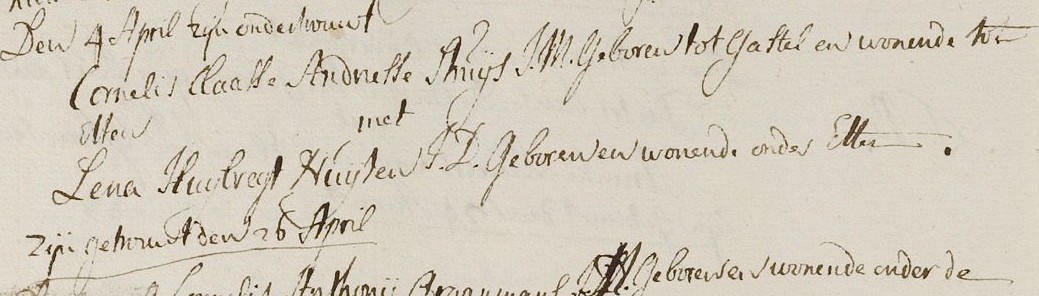 Den 4 April zijn ondertrouwt
Cornelis Claasse Andriesse Thuijs J.M. Geboren tot Gastel en wonende tot
Etten
met
Lena Huijbregt Nuijten J.D. Geboren en wonende onder Etten.
zijn getrouwt den 26 April
Cornelis Anthonij J.M. Geboren en wonende onder de